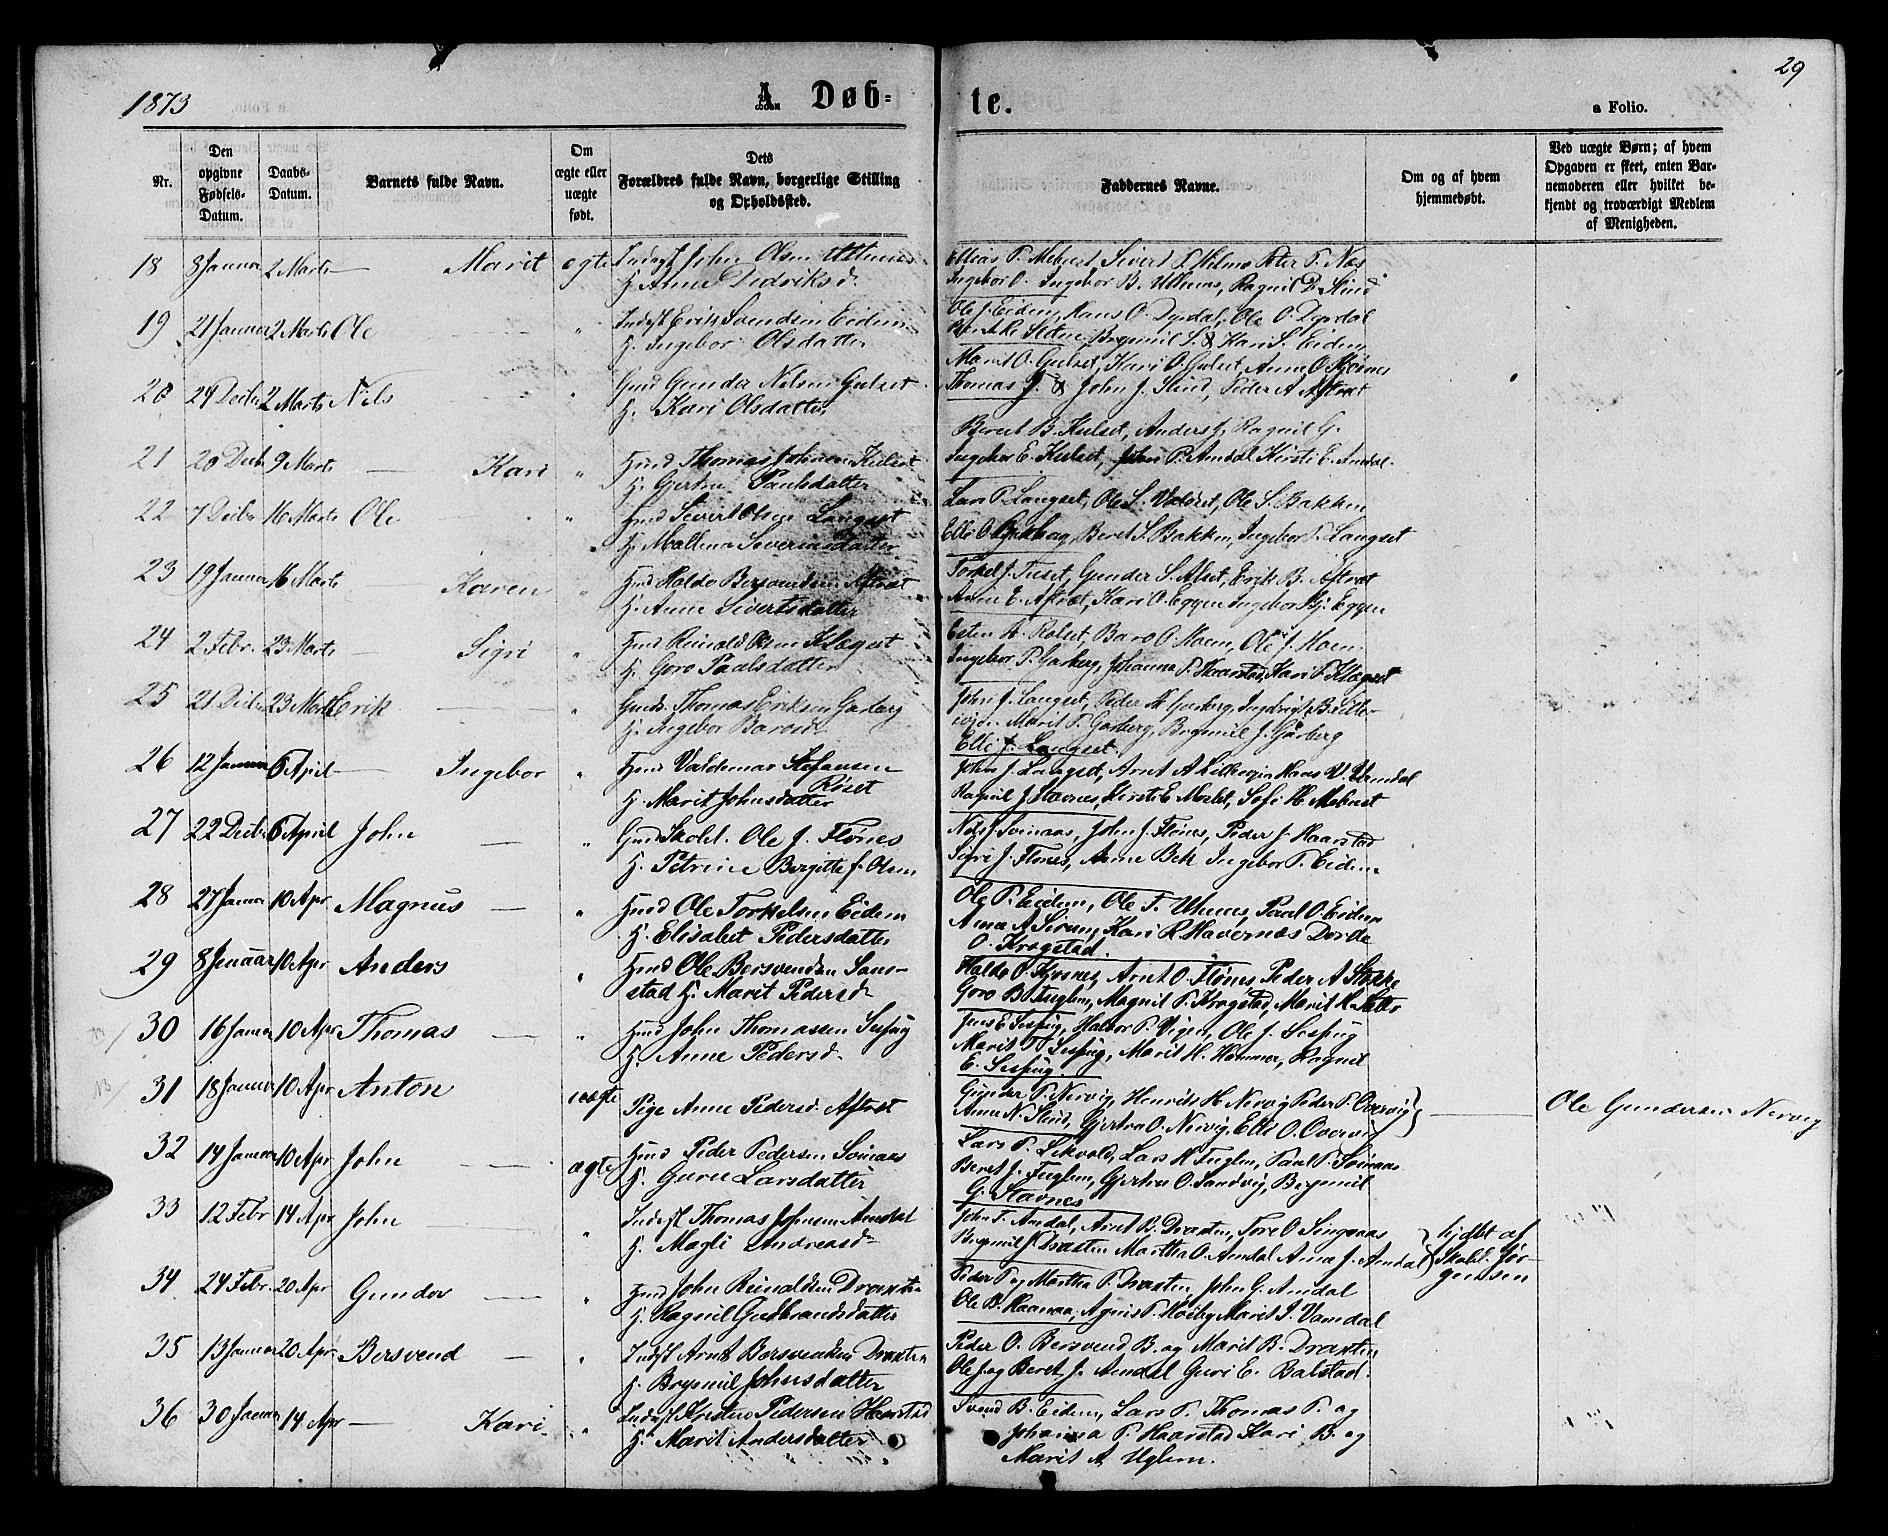 1873
A. Døb-
te.
29
a Folio.
Nr.
Den opgivne Fødsels-Datum.
Daabs-Datum.
Barnets fulde Navn.
Om ægte eller uægte født.
Dets Forældres fulde Navn, borgerlige Stilling og Opholdssted.
Faddernes Navne.
Om og af hvem hjemmedøbt.
Ved uægte Børn; af hvem Opgaven er skeet, enten Barnemoderen eller hvilket bekjendt og troværdigt Medlem af Menigheden.
18 3 Januar 2 Marts — Marit ægte Inderst John Olsen
H. Anne Didriksd.
Ingebor O. Ingebor B. Uthuus, Ragnil D. Slind
19 21 Januar 2 Marts Ole " Inderst Erik Svendsen Eidem
H. Ingebor Olsdatter
Ole J. Eidem, Hans O. Dyrdal, Ole O. Dyrdal
Brynnil S. & Kari S. Eidem
20 29 Decbr 2 Marts Nils " Gmd Gunder Nilsen Gulset
H. Kari Olsdatter
Marit O. Gulset, Kari O. Gulset, Anne O. Kjøsnes
Thomas J. & John J. Slind, Peder A. Aftret
21 20 Decb 9 Marts — Kari " Hmd Thomas Johnsen Kulset
H. Gjertru Paulsdatter
Beret B. Kulset, Anders J. Ragnil G.
Ingebor E. Kulset, John P. Amdal Kirsti E. Amdal
22 7 Decbr 16 Marts Ole " Hmd Sivert Olsen Langset
H. Mallena Severinsdatter
Lars P. Langset, Ole S. Valset, Ole S. Bakken
Elli O. Beret S. Bakken, Ingebor P. Langset
23 19 Januar 16 Marts — Karen " Hmd Haldo Bersvendsen Aftret
H. Anne Sivertsdatter
Torkel J. Tuset, Gunder S. Alset, Erik B. Aftret
Anne E. Aftret, Kari O. Eggen Ingebor Eggen
24 2 Febr. 23 Marts — Sigri " Hmd Reinald Olsen Klegset
H. Goro Paalsdatter
Esten Rolset, Baro O. Moen, Ole J. Moen
Ingebor P. Garberg, Johanna P. Haarstad, Kari P. Klegset
25 21 Decbr 23 Marts Erik " Gmd. Thomas Eriksen Garberg
H. Ingebor Barosd.
John J. Langset, Peder Garberg, Ingebrigt B. Lille-
evjen Marit P. Garberg, Brynnil J. Garberg
Elli J. Langset.
26 12 Januar 6 April — Ingebor " Hmd Valdemar Stefansen
Røset
H. Marit Johnsdatter
John J. Langset, Arnt A. Lilleevjen Haas V. Vamdal
Ragnil J. Stavnes, Kirsti E. Moslet, Sofi H. Mebust
27 22 Decbr 6 April John — " Gmd Skolel. Ole J. Flønes
H. Petrine Bergitte f. Olsen
Nils J. Svinaas, John J. Flønes, Peder J. Haarstad
Sigri J. Flønes, Anne Bek Ingebor P. Eidem
28 27 Januar 10 Apr Magnus — " Hmd Ole Torkelsen Eidem
H. Elisabet Pedersdatter
Ole P. Eidem, Ole T. Uthuus, Paul O. Eidem
Anna A. Sirum, Kari R. Havernæs Dorde
O. Kragstad.
29 8 Januar 10 Apr Anders " Hmd Ole Bersvendsen Samstad
H. Marit Pedersd.
Haldo O. Kjøsnes, Arnt O. Flønes, Peder A. Stokke
Goro B. Fuglem, Magnil P. Kragstad, Marit H. Sæter
30 16 Januar 10 Apr Thomas — " Hmd John Thomassen Sesseng
H. Anne Pedersd.
Jens E. Sesseng, Halvor P. Vigen, Ole J. Sesseng
Marit T. Sesseng, Marit H. Hammer, Ragnil
E. Sesseng
31 18 Januar 10 Apr Anton uægte Pige Anne Pedersd. Aftret
Gunder P. Nervig, Henrik H. Nervig Peder P. Overvig
Anne N. Slind, Gjertru O. Nervig, Elli O. Overvig — Ole Gundersen Nervig
32 14 Januar 10 Apr John — ægte Hmd Peder Pedersen Svinaas
H. Guru Larsdatter
Lars P. Lekvold, Lars H. Fuglem, Paul P. Svinaas
Beret J. Fuglem, Gjertru O. Sandvig, Brynnil
G. Stavnes
33 12 Febr 14 Apr John " Inderst Thomas Johnsen Amdal
H. Magli Andreasd.
John T. Amdal, Arnt B. Draxten, Tore O. Singsaas
Brynnil J. Draxten Martha O. Amdal Anna J. Amdal
hjdbt af
Skolel. Jør-
gensen
34 24 Febr. 20 Apr Gunder — " Hmd John Reinaldsen Draxten
H. Ragnil Gudbrandsdatter
Peder P. og Martha P. Draxten, John G. Amdal
Ole B. Haanaa, Agnis P. Høiby Marit J. Vamdal
35 13 Januar 20 Apr. Bersvend — " Inderst Arnt Bersvendsen Draxten
H. Brynnil Johnsdatter
Peder O. Bersvend B. og Marit B. Draxten
Ole J. og Beret J. Amdal Guri E. Balstad
36 30 Januar 14 Apr — Kari " Inderst Kristen Pedersen Haarstad
H. Marit Andersdatter
Svend B. Eidem, Lars P. Thomas P. og
Johanna P. Haarstad Kari B. og
Marit A. Uglem.